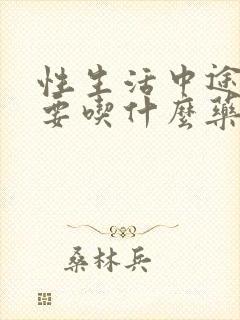 性生活中途
要喫什麼藥
桑林兵